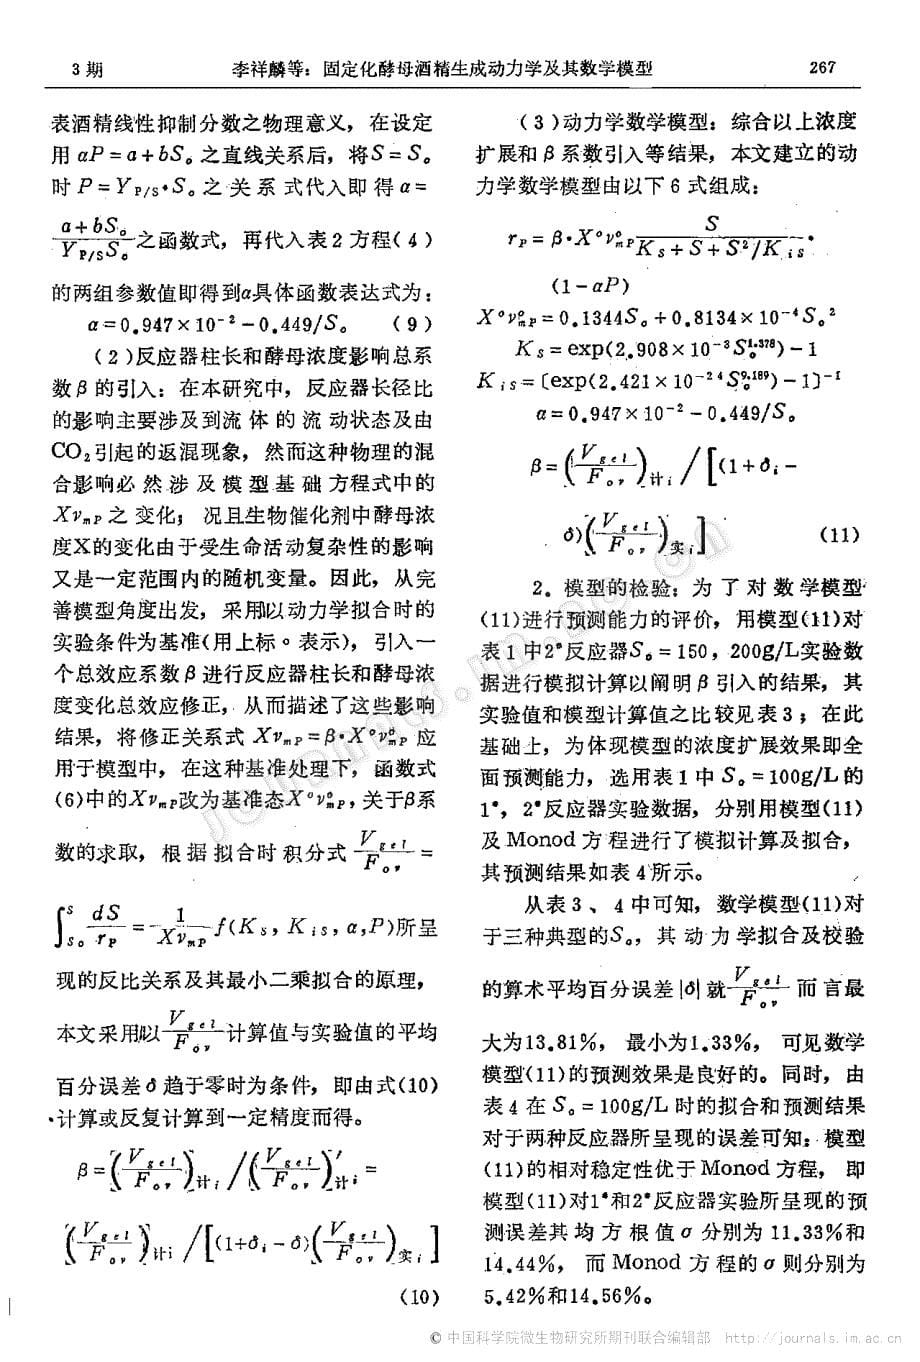 3期 李祥麟等：固定化酵母酒精生成动力学及其数学模型 267
表酒精线性抑制分数之物理意义，在设定
用 αP = a + bS₀ 之直线关系后，将S = S₀
时 P = Y_P/S·S₀ 之关系式代入即得 α =
(a + bS₀)/(Y_P/S S₀) 之函数式，再代入表2方程(4)
的两组参数值即得到α具体函数表达式为：
α = 0.947×10⁻² − 0.449/S₀ (9)
(2)反应器柱长和酵母浓度影响总系
数β的引入：在本研究中，反应器长径比
的影响主要涉及到流体的流动状态及由
CO₂引起的返混现象，然而这种物理的混
合影响必然涉及模型基础方程式中的
Xν_mP 之变化；况且生物催化剂中酵母浓
度X的变化由于受生命活动复杂性的影响
又是一定范围内的随机变量。因此，从完
善模型角度出发，采用以动力学拟合时的
实验条件为基准(用上标°表示)，引入一
个总效应系数β进行反应器柱长和酵母浓
度变化总效应修正，从而描述了这些影响
结果，将修正关系式 Xν_mP = β·X°ν°_mP 应
用于模型中，在这种基准处理下，函数式
(6)中的Xν_mP改为基准态X°ν°_mP，关于β系
数的求取，根据拟合时积分式 V_gel/F_ov =
∫_S₀^S dS/r_P = 1/(Xν_mP) f(K_S，K_iS，α,P)所呈
现的反比关系及其最小二乘拟合的原理，
本文采用以 V_gel/F_ov 计算值与实验值的平均
百分误差δ趋于零时为条件，即由式(10)
计算或反复计算到一定精度而得。
β = (V_gel/F_ov)_计i / (V_gel/F_ov)′_计i =
(V_gel/F_ov)_计i / [(1+δ_i − δ)(V_gel/F_ov)_实i]
(10)
(3)动力学数学模型：综合以上浓度
扩展和β系数引入等结果，本文建立的动
力学数学模型由以下6式组成：
r_P = β·X°ν°_mP S/(K_S + S + S²/K_iS)·
(1 − αP)
X°ν°_mP = 0.1344S₀ + 0.8134×10⁻⁴S₀²
K_S = exp(2.908×10⁻³S₀^1.378) − 1
K_iS = [exp(2.421×10⁻²⁴S₀^9.189) − 1]⁻¹
α = 0.947×10⁻² − 0.449/S₀
β = (V_gel/F_ov)_计i / [(1+δ_i −
δ)(V_gel/F_ov)_实i] (11)
2。模型的检验：为了对数学模型
(11)进行预测能力的评价，用模型(11)对
表1中2#反应器S₀ = 150，200g/L实验数
据进行模拟计算以阐明β引入的结果，其
实验值和模型计算值之比较见表3；在此
基础上，为体现模型的浓度扩展效果即全
面预测能力，选用表1中 S₀ = 100g/L的
1#，2#反应器实验数据，分别用模型(11)
及 Monod 方程进行了模拟计算及拟合，
其预测结果如表4所示。
从表3、4中可知，数学模型(11)对
于三种典型的S₀，其动力学拟合及校验
的算术平均百分误差|δ|就 V_gel/F_ov 而言最
大为13.81%，最小为1.33%，可见数学
模型(11)的预测效果是良好的。同时，由
表4在 S₀ = 100g/L 时的拟合和预测结果
对于两种反应器所呈现的误差可知：模型
(11)的相对稳定性优于 Monod 方程，即
模型(11)对1#和2#反应器实验所呈现的预
测误差其均方根值σ分别为11.33%和
14.44%，而 Monod 方程的σ则分别为
5.42%和14.56%。
© 中国科学院微生物研究所期刊联合编辑部 http://journals.im.ac.cn